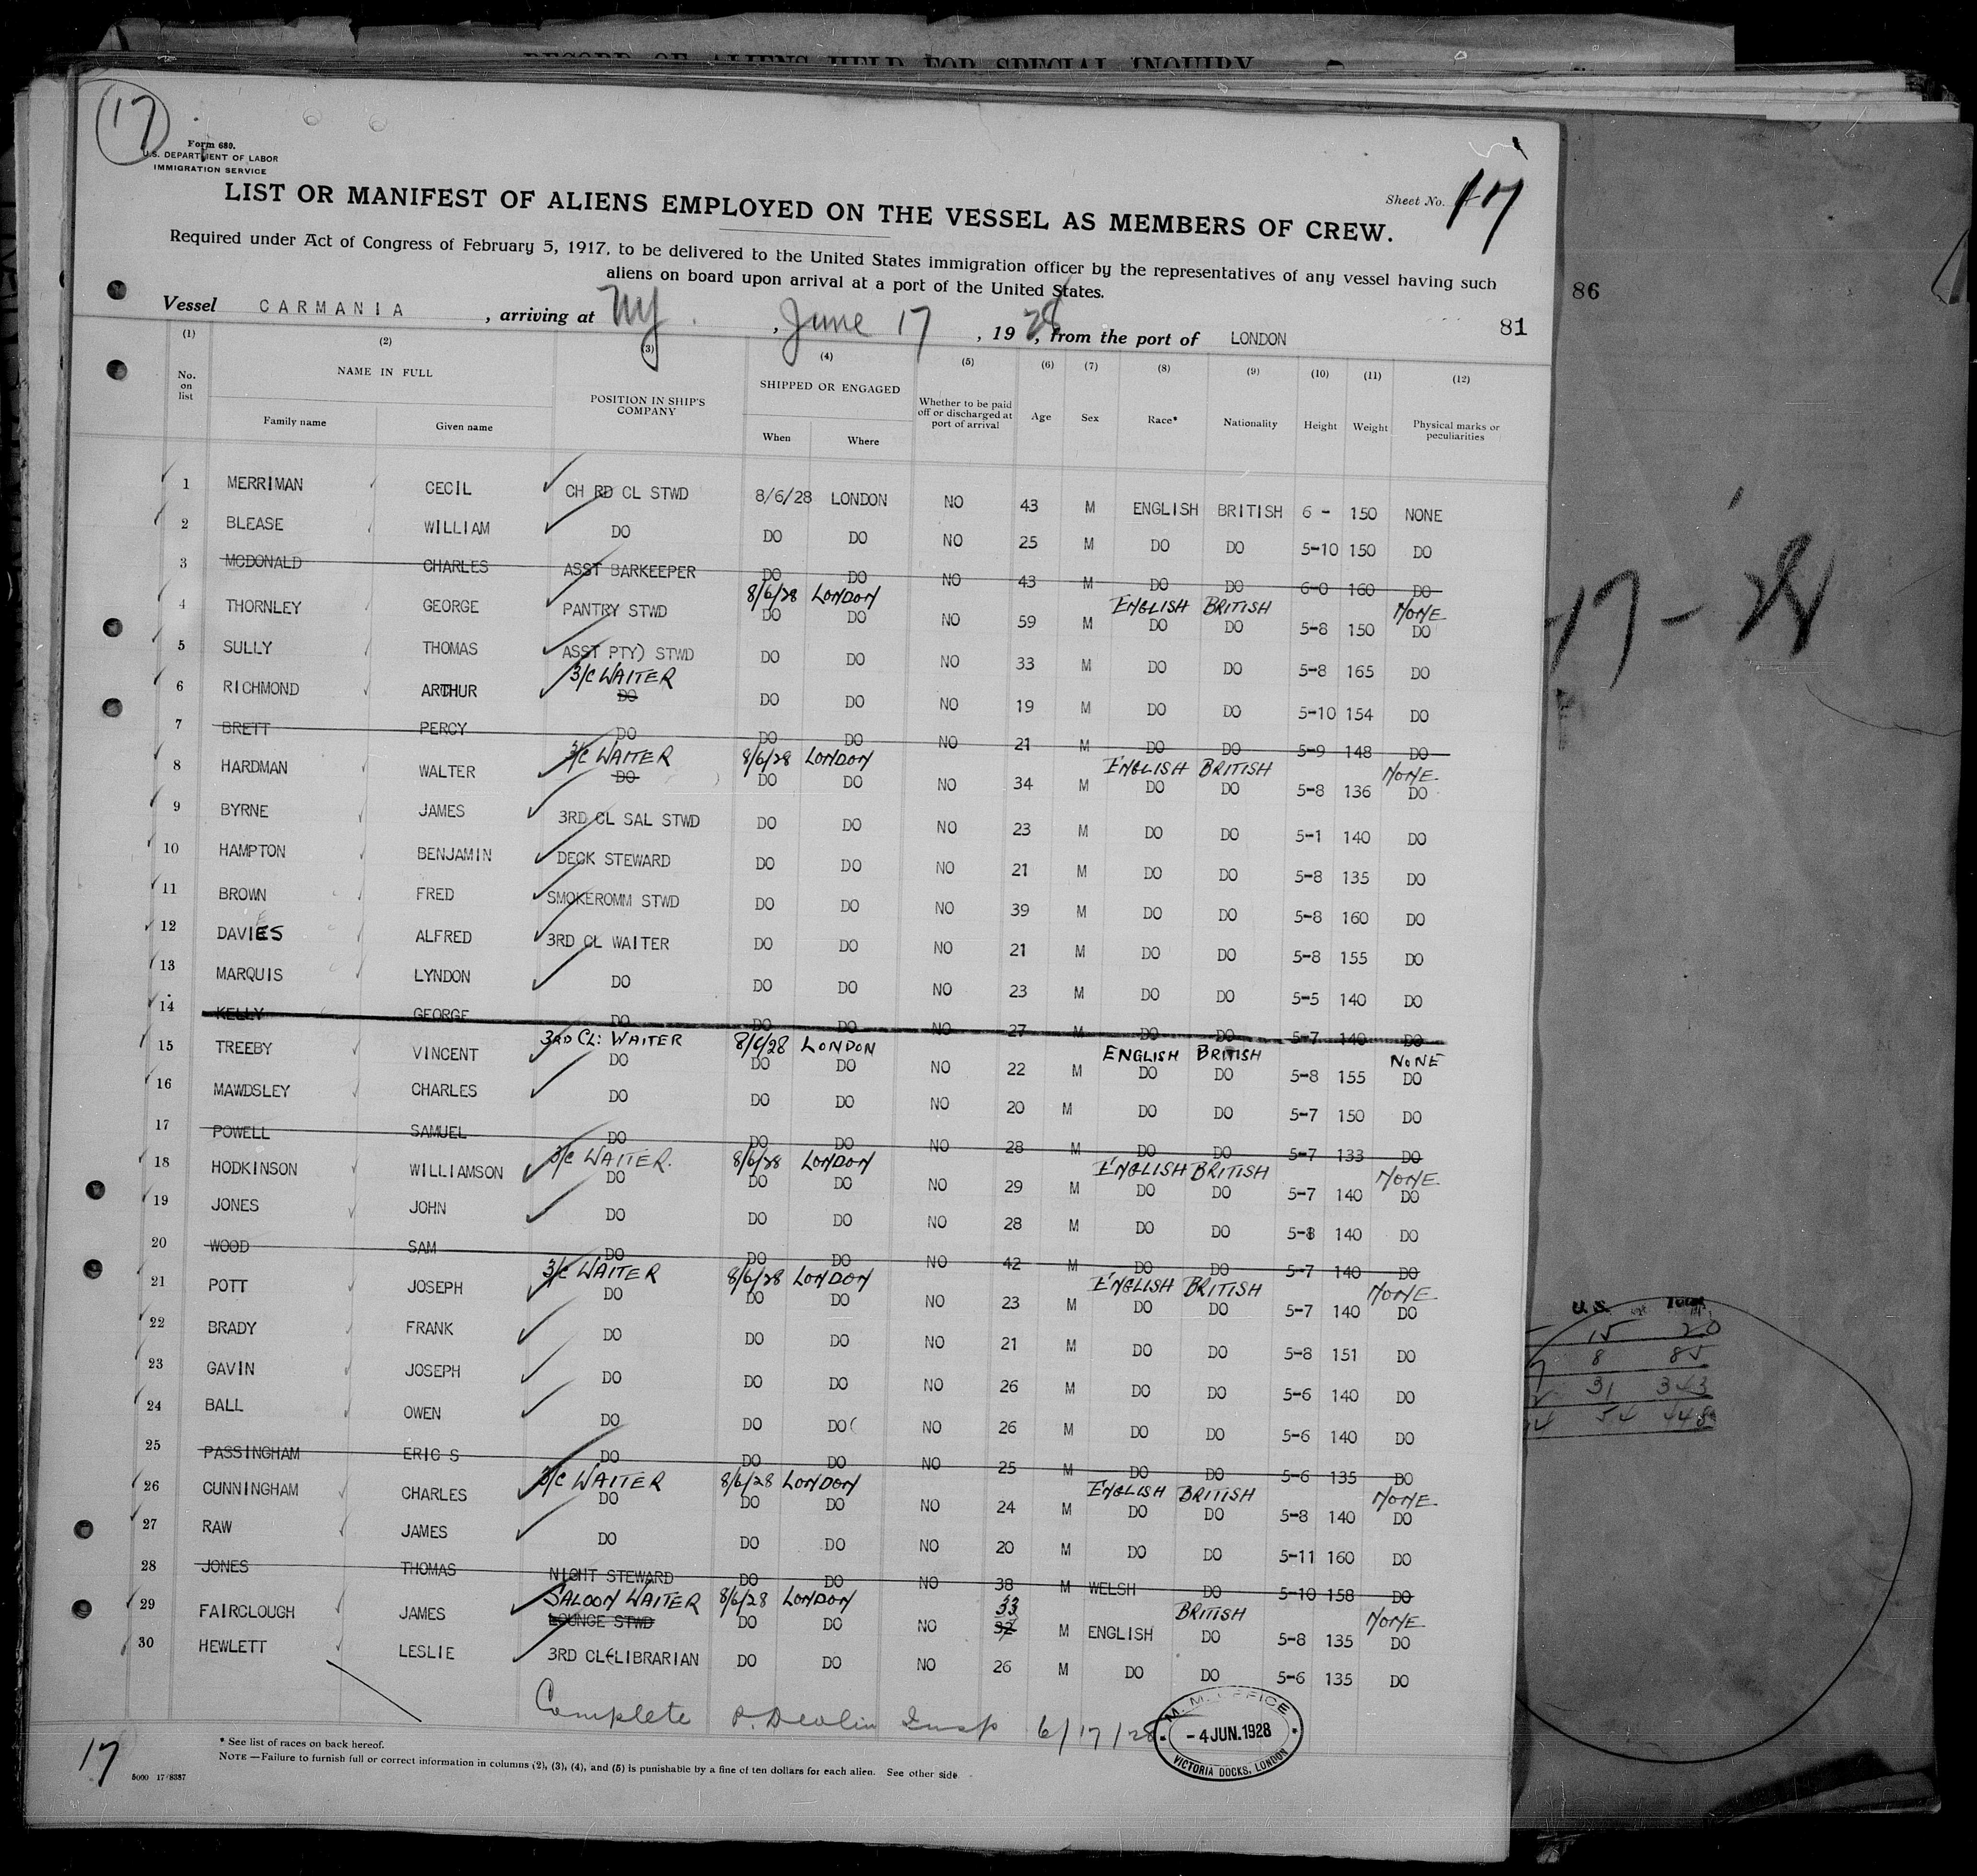 RECORD OF ALIENS HELD FOR SPECIAL INQUIRY
17
Form 680.
U.S. DEPARTMENT OF LABOR
IMMIGRATION SERVICE
Sheet No. 17
LIST OR MANIFEST OF ALIENS EMPLOYED ON THE VESSEL AS MEMBERS OF CREW.
Required under Act of Congress of February 5, 1917, to be delivered to the United States immigration officer by the representatives of any vessel having such
aliens on board upon arrival at a port of the United States.
86
81
Vessel CARMANIA , arriving at NY. , June 17 , 1928, from the port of LONDON
(1) (2) (3) (4) (5) (6) (7) (8) (9) (10) (11) (12)
No. on list NAME IN FULL POSITION IN SHIP'S COMPANY SHIPPED OR ENGAGED Whether to be paid off or discharged at port of arrival Age Sex Race* Nationality Height Weight Physical marks or peculiarities
Family name Given name When Where
1 MERRIMAN CECIL CH RD CL STWD 8/6/28 LONDON NO 43 M ENGLISH BRITISH 6 - 150 NONE
2 BLEASE WILLIAM DO DO DO NO 25 M DO DO 5-10 150 DO
3 MCDONALD CHARLES ASST BARKEEPER DO DO NO 43 M DO DO 6-0 160 DO
8/6/28 LONDON ENGLISH BRITISH NONE
4 THORNLEY GEORGE PANTRY STWD DO DO NO 59 M DO DO 5-8 150 DO
5 SULLY THOMAS ASST PTY) STWD DO DO NO 33 M DO DO 5-8 165 DO
3/C WAITER
6 RICHMOND ARTHUR DO DO DO NO 19 M DO DO 5-10 154 DO
7 BRETT PERCY DO DO DO NO 21 M DO DO 5-9 148 DO
3/C WAITER 8/6/28 LONDON ENGLISH BRITISH NONE
8 HARDMAN WALTER DO DO DO NO 34 M DO DO 5-8 136 DO
9 BYRNE JAMES 3RD CL SAL STWD DO DO NO 23 M DO DO 5-1 140 DO
10 HAMPTON BENJAMIN DECK STEWARD DO DO NO 21 M DO DO 5-8 135 DO
11 BROWN FRED SMOKEROMM STWD DO DO NO 39 M DO DO 5-8 160 DO
12 DAVIES ALFRED 3RD CL WAITER DO DO NO 21 M DO DO 5-8 155 DO
13 MARQUIS LYNDON DO DO DO NO 23 M DO DO 5-5 140 DO
14 KELLY GEORGE DO DO DO NO 27 M DO DO 5-7 140 DO
3RD CL: WAITER 8/6/28 LONDON ENGLISH BRITISH NONE
15 TREEBY VINCENT DO DO DO NO 22 M DO DO 5-8 155 DO
16 MAWDSLEY CHARLES DO DO DO NO 20 M DO DO 5-7 150 DO
17 POWELL SAMUEL DO DO DO NO 28 M DO DO 5-7 133 DO
3/C WAITER. 8/6/28 LONDON ENGLISH BRITISH NONE
18 HODKINSON WILLIAMSON DO DO DO NO 29 M DO DO 5-7 140 DO
19 JONES JOHN DO DO DO NO 28 M DO DO 5-8 140 DO
20 WOOD SAM DO DO DO NO 42 M DO DO 5-7 140 DO
3/C WAITER 8/6/28 LONDON ENGLISH BRITISH NONE
21 POTT JOSEPH DO DO DO NO 23 M DO DO 5-7 140 DO
22 BRADY FRANK DO DO DO NO 21 M DO DO 5-8 151 DO
23 GAVIN JOSEPH DO DO DO NO 26 M DO DO 5-6 140 DO
24 BALL OWEN DO DO DO( NO 26 M DO DO 5-6 140 DO
25 PASSINGHAM ERIC S DO DO DO NO 25 M DO DO 5-6 135 DO
3/C WAITER 8/6/28 LONDON ENGLISH BRITISH NONE
26 CUNNINGHAM CHARLES DO DO DO NO 24 M DO DO 5-8 140 DO
27 RAW JAMES DO DO DO NO 20 M DO DO 5-11 160 DO
28 JONES THOMAS NIGHT STEWARD DO DO NO 38 M WELSH DO 5-10 158 DO
SALOON WAITER 8/6/28 LONDON 33 BRITISH NONE
29 FAIRCLOUGH JAMES LOUNGE STWD DO DO NO 32 M ENGLISH DO 5-8 135 DO
30 HEWLETT LESLIE 3RD CL(LIBRARIAN DO DO NO 26 M DO DO 5-6 135 DO
Complete P. Devlin Insp 6/17/28
OFFICE
- 4 JUN. 1928
VICTORIA DOCKS, LONDON
17
* See list of races on back hereof.
NOTE —Failure to furnish full or correct information in columns (2), (3), (4), and (5) is punishable by a fine of ten dollars for each alien. See other side.
5000 17/8387
-17-28
U.S. Total
15 20
8 85
31 343
54 448